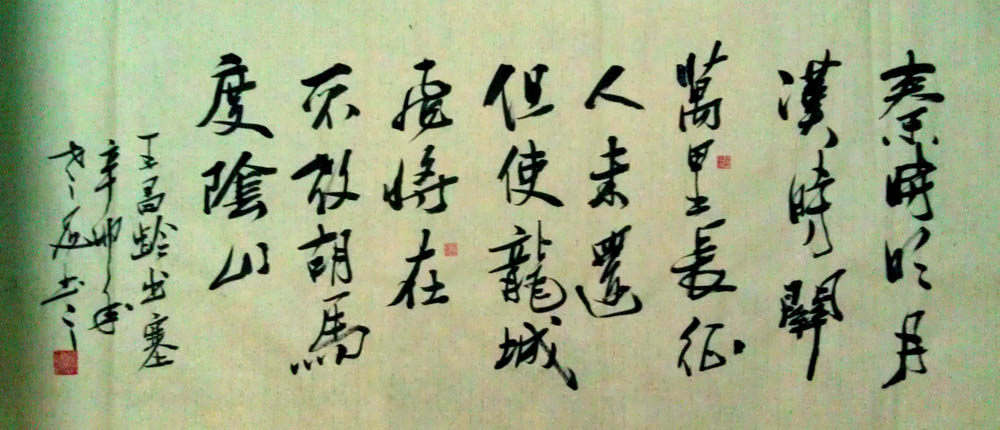 秦時明月
漢時關
萬里長征
人未還
但使龍城
飛將在
不教胡馬
度陰山
王昌齡出塞
辛卯年
書